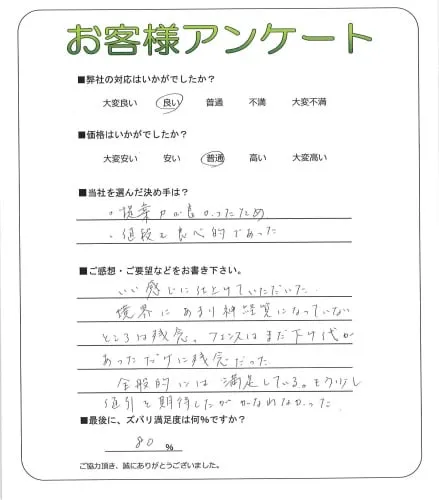 お客様アンケート
■弊社の対応はいかがでしたか?
大変良い 良い 普通 不満 大変不満
■価格はいかがでしたか?
大変安い 安い 普通 高い 大変高い
■当社を選んだ決め手は?
・提案力が良かったため
・値段も良心的であった
■ご感想・ご要望などをお書き下さい。
いい感じに仕上げていただいた。
境界にあまり神経質になっていない
ところは残念。フェンスはまだ下げ代が
あっただけに残念だった
全般的には満足している。もう少し
値引を期待したがかなわなかった.
■最後に、ズバリ満足度は何%ですか?
80 %
ご協力頂き、誠にありがとうございました。